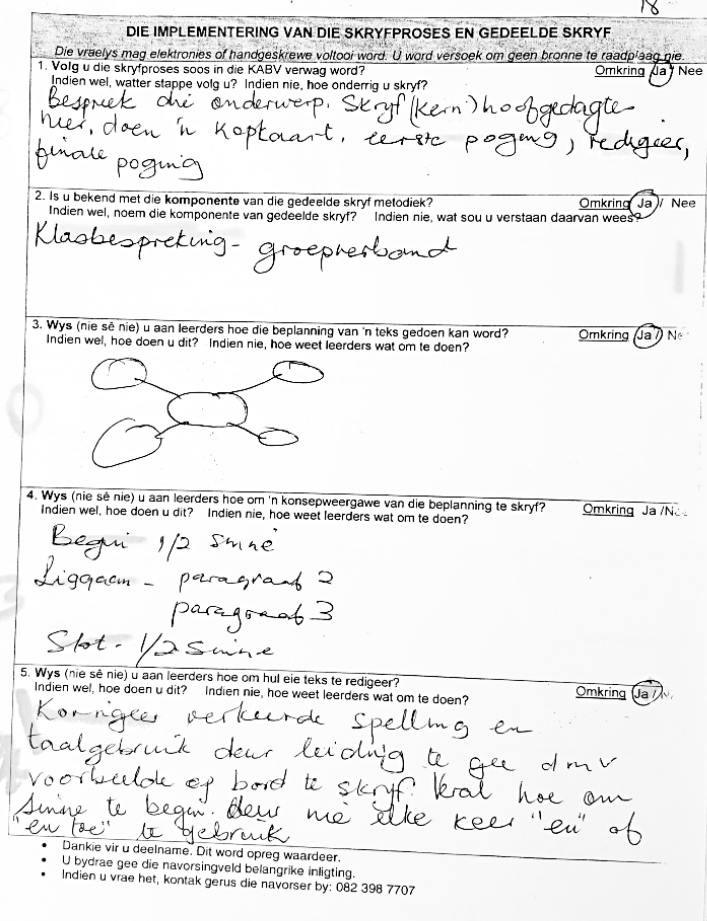 18
DIE IMPLEMENTERING VAN DIE SKRYFPROSES EN GEDEELDE SKRYF
Die vraelys mag elektronies of handgeskrewe voltooi word. U word versoek om geen bronne te raadplaag nie.
1. Volg u die skryfproses soos in die KABV verwag word? Omkring Ja / Nee
Indien wel, watter stappe volg u? Indien nie, hoe onderrig u skryf?
Bespreek die onderwerp. Skryf (kern) hoofgedagte
hier, doen 'n kopkaart, eerste poging, redigeer,
finale poging
2. Is u bekend met die komponente van die gedeelde skryf metodiek? Omkring Ja / Nee
Indien wel, noem die komponente van gedeelde skryf? Indien nie, wat sou u verstaan daarvan wees?
Klasbespreking - groepverband
3. Wys (nie sê nie) u aan leerders hoe die beplanning van 'n teks gedoen kan word? Omkring Ja /
Indien wel, hoe doen u dit? Indien nie, hoe weet leerders wat om te doen?
4. Wys (nie sê nie) u aan leerders hoe om 'n konsepweergawe van die beplanning te skryf? Omkring Ja /
Indien wel, hoe doen u dit? Indien nie, hoe weet leerders wat om te doen?
Begin 1/2 sinne
Liggaam - paragraaf 2
paragraaf 3
Slot - 1/2 sinne
5. Wys (nie sê nie) u aan leerders hoe om hul eie teks te redigeer? Omkring Ja /
Indien wel, hoe doen u dit? Indien nie, hoe weet leerders wat om te doen?
Korrigeer verkeerde spelling en
taalgebruik deur leiding te gee dmv
voorbeelde op bord te skryf. Veral hoe om
sinne te begin. deur nie elke keer "en" of
"en toe" te gebruik
• Dankie vir u deelname. Dit word opreg waardeer.
• U bydrae gee die navorsingveld belangrike inligting.
• Indien u vrae het, kontak gerus die navorser by: 082 398 7707